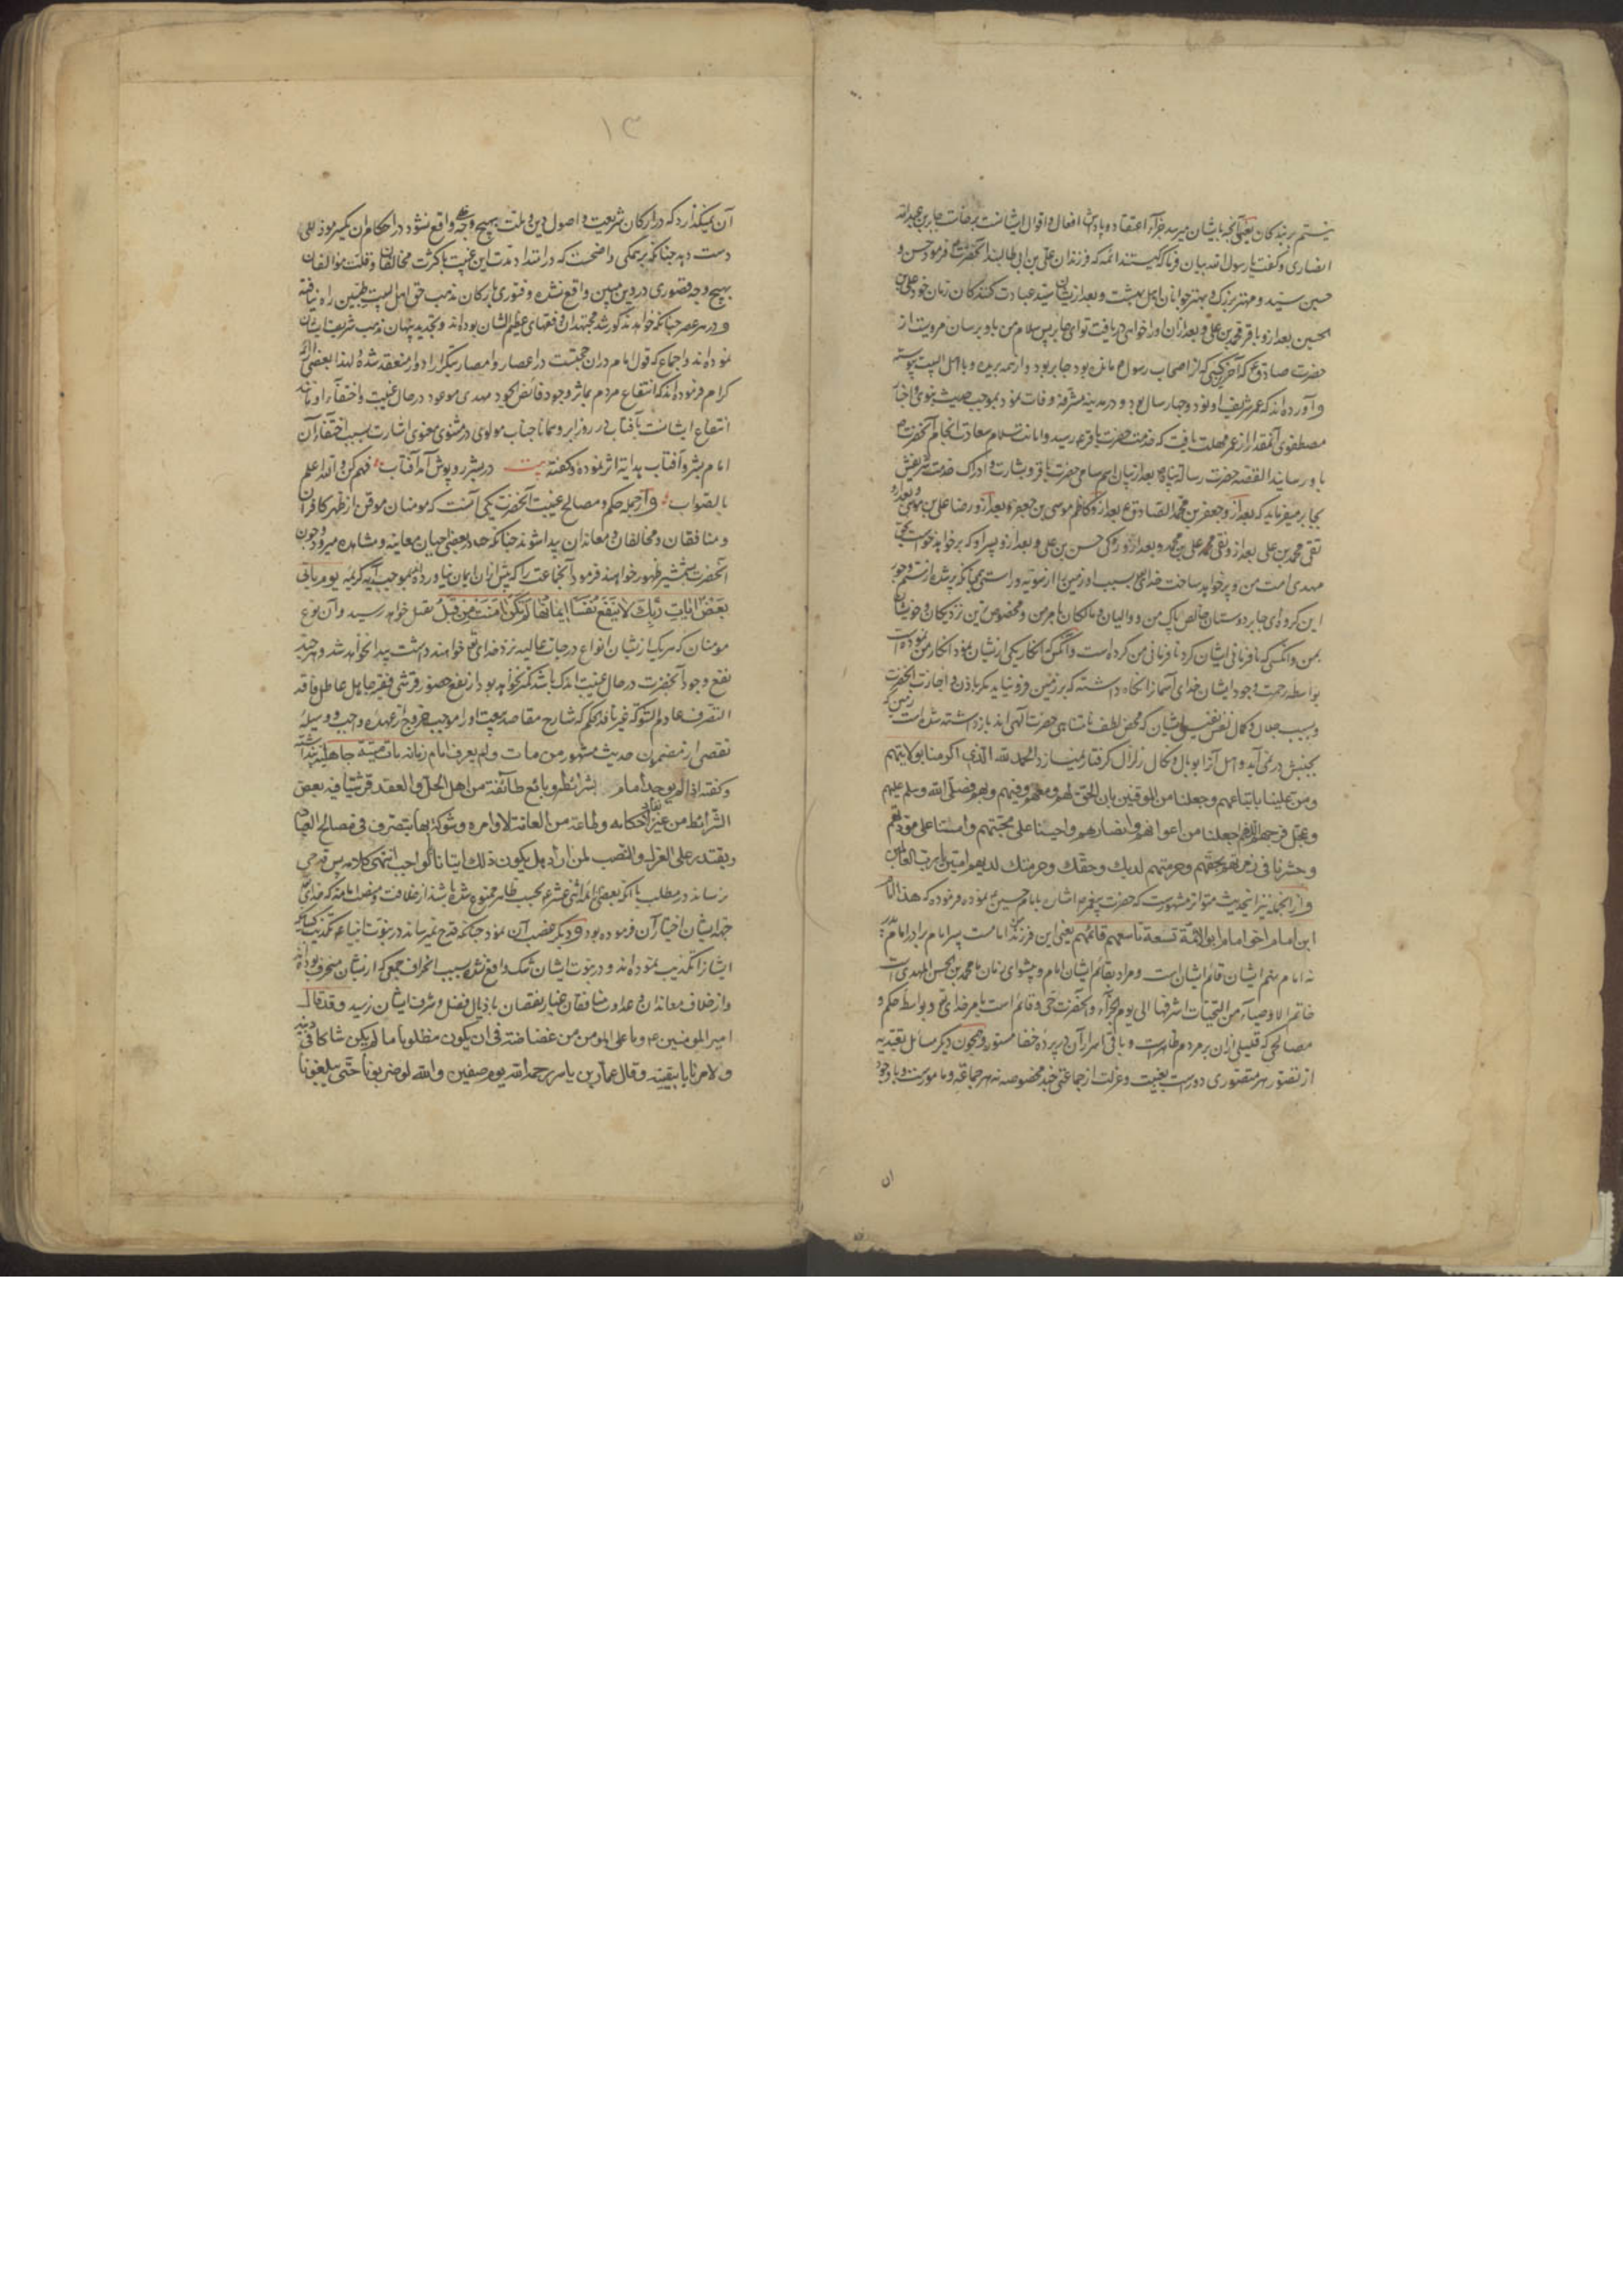 نیستم بر بندگان یعنی آنچه بایشان میرسد جزآء اعتقاد و پاداش افعال و اقوال ایشانست برخاست جابر بن عبدالله
انصاری و گفت یا رسول الله بیان فرما که کیستند ائمه که فرزندان علی بن ابی طالبند آنحضرت فرمود حسن و
حسین سیّد و مهتر بزرگ و بهتر جوانان اهل بهشت و بعد ازیشان سیّد عبادت کنندگان زمان خود علی بن
الحسین بعد ازو باقر محمد بن علی و بعد ازان اورا خواهی دریافت تو ای جابر پس سلام من باو برسان مرویست از
حضرت صادق ع که آخر کسی که از اصحاب رسول ص مانده بود جابر بود و از همه بریده و با اهل البیت پیوسته
و آورده اند که عمر شریف او نود و چهار سال بود و در مدینه مشرفه وفات نمود بموجب حدیث نبوی و اخبار
مصطفوی آنمقدار از عمر مهلت یافت که خدمت حضرت باقر ع رسید و امانت سلام سعادت انجام آنحضرت
باو رسانید القصه حضرت رسالة پناه ص بعد از بیان اسم سامی حضرت باقر و بشارت و ادراک خدمت شریفش
بجابر میفرماید که بعد ازو جعفر بن محمد الصادق ع بعد ازو کاظم موسی بن جعفر ع بعد ازو رضا علی بن موسی و بعد ازو
تقی محمد بن علی بعد ازو نقی علی بن محمد و بعد ازو زکی حسن بن علی و بعد ازو پسر او که برخواهد خواست بحق
مهدی امت من و پر خواهد ساخت خدای بسبب او زمین را از سویّه و راستی همچنانکه پر شده از ستم و جور
این گروه ای جابر دوستان خالص پاک من و والیان و مالکان بامر من و مخصوص ترین نزدیکان و خویشان
بمن و آنکس که نافرمانی ایشان کرد نافرمانی من کرده است و آنکس که انکار یکی ازیشان نمود انکار من نموده است
بواسطه رحمت وجود ایشان خدای آسمانرا نگاه داشته که بر زمین فرو نیاید مگر باذن و اجازت آنحضرت
و بسبب جلال و کمال نفس نفیس ایشان که محض لطف نامتناهی حضرت الهی اند باز داشته شده است زمین که
بجنبش در نمی آید و اهل آنرا بوبال و نکال زلزال گرفتار نمیسازد الحمد لله الذی اکرمنا بولایتهم
ومنّ علینا باتباعهم وجعلنا من الموقنین بان الحق لهم ومعهم وفیهم وبهم فصلی الله وسلم علیهم
وعجل فرجهم اللهم اجعلنا من اعوانهم وانصارهم واحینا علی محبتهم وامتنا علی مودتهم
وحشرنا فی زمرتهم بحقهم وحرمتهم لدیک وحقک وحرمتک لدیهم امین یا رب العالمین
و از آنجمله نیز اینحدیث متواتر مشهورست که حضرت پیغمبر اشارت بامام حسین ع نموده فرموده که هذا امام
ابن امام اخی امام ابو الائمة تسعة تاسعهم قائمهم یعنی این فرزند من امامست پسر امام برادر امام پدر
نه امام نهم ایشان قائم ایشان است و مراد بقائم ایشان امام و پیشوای زمان ما محمد بن الحسن المهدی است
خاتم الاوصیآء من التحیات اشرفها الی یوم الجزآء و آنحضرت حیّ و قائم است بامر خدای تع و بواسطه حکم و
مصالحی که قلیلی ازان بر مردم ظاهرست و باقی اسرار آن در پرده خفا مستور و همچون دیگر مسائل تعبّدیه
از تصوّر هر متصوّری دورست بغیبت و عزلت از جماعتی چند مخصوصه نه هر جماعة و مامورست و با وجود
ان
۱۳
آن نمیگذارد که در ارکان شریعت و اصول دین و ملت بهیچ وجه واقع نشود در احکام ان یکسر موذ للی
دست دهد چنانکه بر همگی واضحست که در امتداد مدّت این غیبت با کثرت مخالفان و قلّت موالفان
بهیچ وجه قصوری در دین مبین واقع نشده و فتوری بارکان مذهب حق اهل البیت طیّبین راه نیافته
و در هر عصر چنانکه خواهد مذکور شد مجتهدان و فقهای عظیم الشان بوده اند و بتجدید بنیان مذهب شریف ایشان
نموده اند و اجماع که قول امام دران حجتست در اعصار و امصار بتکرار ادوار منعقد شده و لهذا بعضی ائمه
کرام فرموده اند که انتفاع مردم بمآثر وجود فائض الجود مهدی موعود در حال غیبت و اختفآء او مانند
انتفاع ایشانست بآفتاب در روز ابر و همانا جناب مولوی در مثنوی معنوی اشارت بسبب اختفآء آن
امام بشر و آفتاب هدایة اثر نموده و گفته بیت در بشر روپوش آمد آفتاب فهم کن والله اعلم
بالصواب و از جمله حکم و مصالح غیبت آنحضرت یکی آنست که مومنان موقن از ظهر کافران
و منافقان و مخالفان و معاندان پیدا شوند چنانکه در بعضی احیان معاینه و مشاهده میرود و چون
آنحضرت بشمشیر ظهور خواهند فرمود آنجماعت را که پیش ازان ایمان نیاورده اند بموجب آیة کریمه یوم یاتی
بَعْضُ ایَاتِ رَبِّکَ لَا یَنْفَعُ نَفْسًا إِیمَانُهَا لَمْ تَکُنْ آمَنَتْ مِنْ قَبْلُ بقتل خواهد رسید و آن نوع
مومنان که هر یک ازیشان انواع درجات عالیه نزد خدای تع خواهند داشت پیدا نخواهد شد و هر چند
نفع وجود آنحضرت در حال غیبت اندک باشد کمتر نخواهد بود از نفع حضور قرشی فقیر جاهل عاطل فاقد
التصرف عادم الشوکة غیر نافذ الحکم که شارح مقاصد بیعت او را موجب خروج از عهده واجب و وسیله
تفصی از مضمون حدیث مشهور من مات ولم یعرف امام زمانه مات میتة جاهلیة پنداشته
و گفته اذا لم یوجد امام بشرائطه وبایع طائفة من اهل الحل والعقد قرشیا فیه بعض
الشرائط من غیر نفاذ احکامه وطاعة من العامة لاوامره وشوکة بها یتصرف فی مصالح العباد
ویقتدر علی العزل والنصب لمن اراد هل یکون ذلک اتیانا بالواجب انتهی کلامه پس قدحی
نرساند در مطلب ما آنکه بعضی ائمه اثنی عشر ع بحسب ظاهر ممنوع شده باشند از خلافت و منصب امامة که خدای
جهة ایشان اختیار آن فرموده بود و دیگری غصب آن نمود چنانکه قدح نمیرساند در نبوّت انبیاء ع تکذیب کسانی که
ایشانرا تکذیب نموده اند و در نبوّت ایشان شک واقع نشده بسبب انحراف جمعی که ازیشان منحرف بوده اند
و از خلاف معاندان و عداوت منافقان غبار نقصان باذیال فضل و شرف ایشان نرسید وقد قال
امیر المومنین ع وما علی المومن من غضاضة فی ان یکون مظلوما ما لم یکن شاکا فی دینه
ولا مرتابا بیقینه وقال عمار بن یاسر رحمه الله یوم صفین والله لو ضربونا حتی یبلغونا